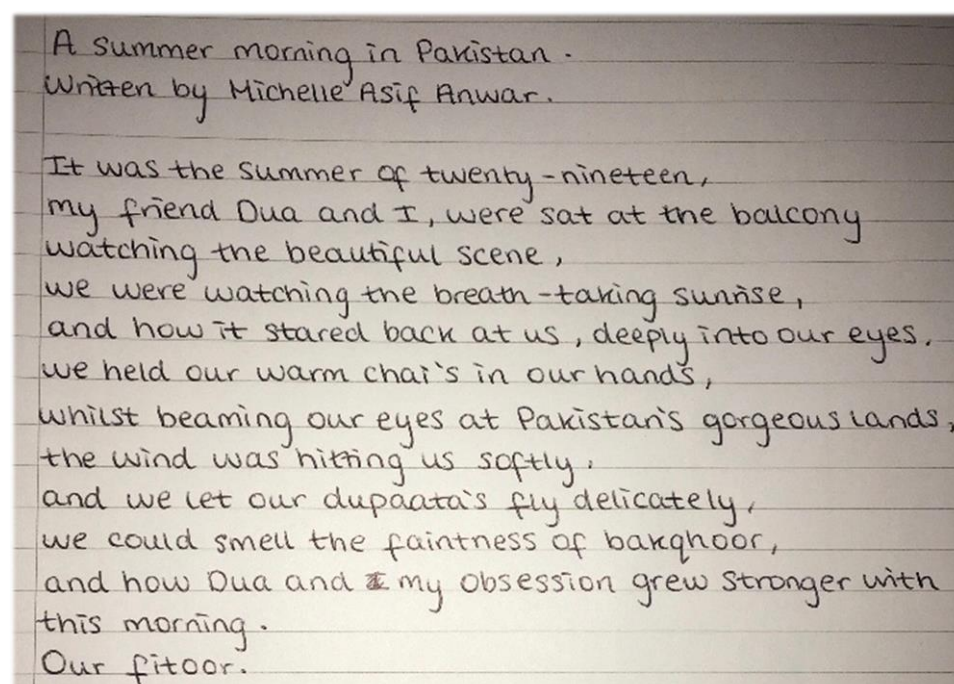 A summer morning in Pakistan.
Written by Michelle Asif Anwar.
It was the summer of twenty-nineteen,
my friend Dua and I, were sat at the balcony
watching the beautiful scene,
we were watching the breath-taking sunrise,
and how it stared back at us, deeply into our eyes.
we held our warm chai's in our hands,
whilst beaming our eyes at Pakistan's gorgeous lands,
the wind was hitting us softly.
and we let our dupaata's fly delicately,
we could smell the faintness of bakqhoor,
and how Dua and my obsession grew stronger with
this morning.
Our fitoor.